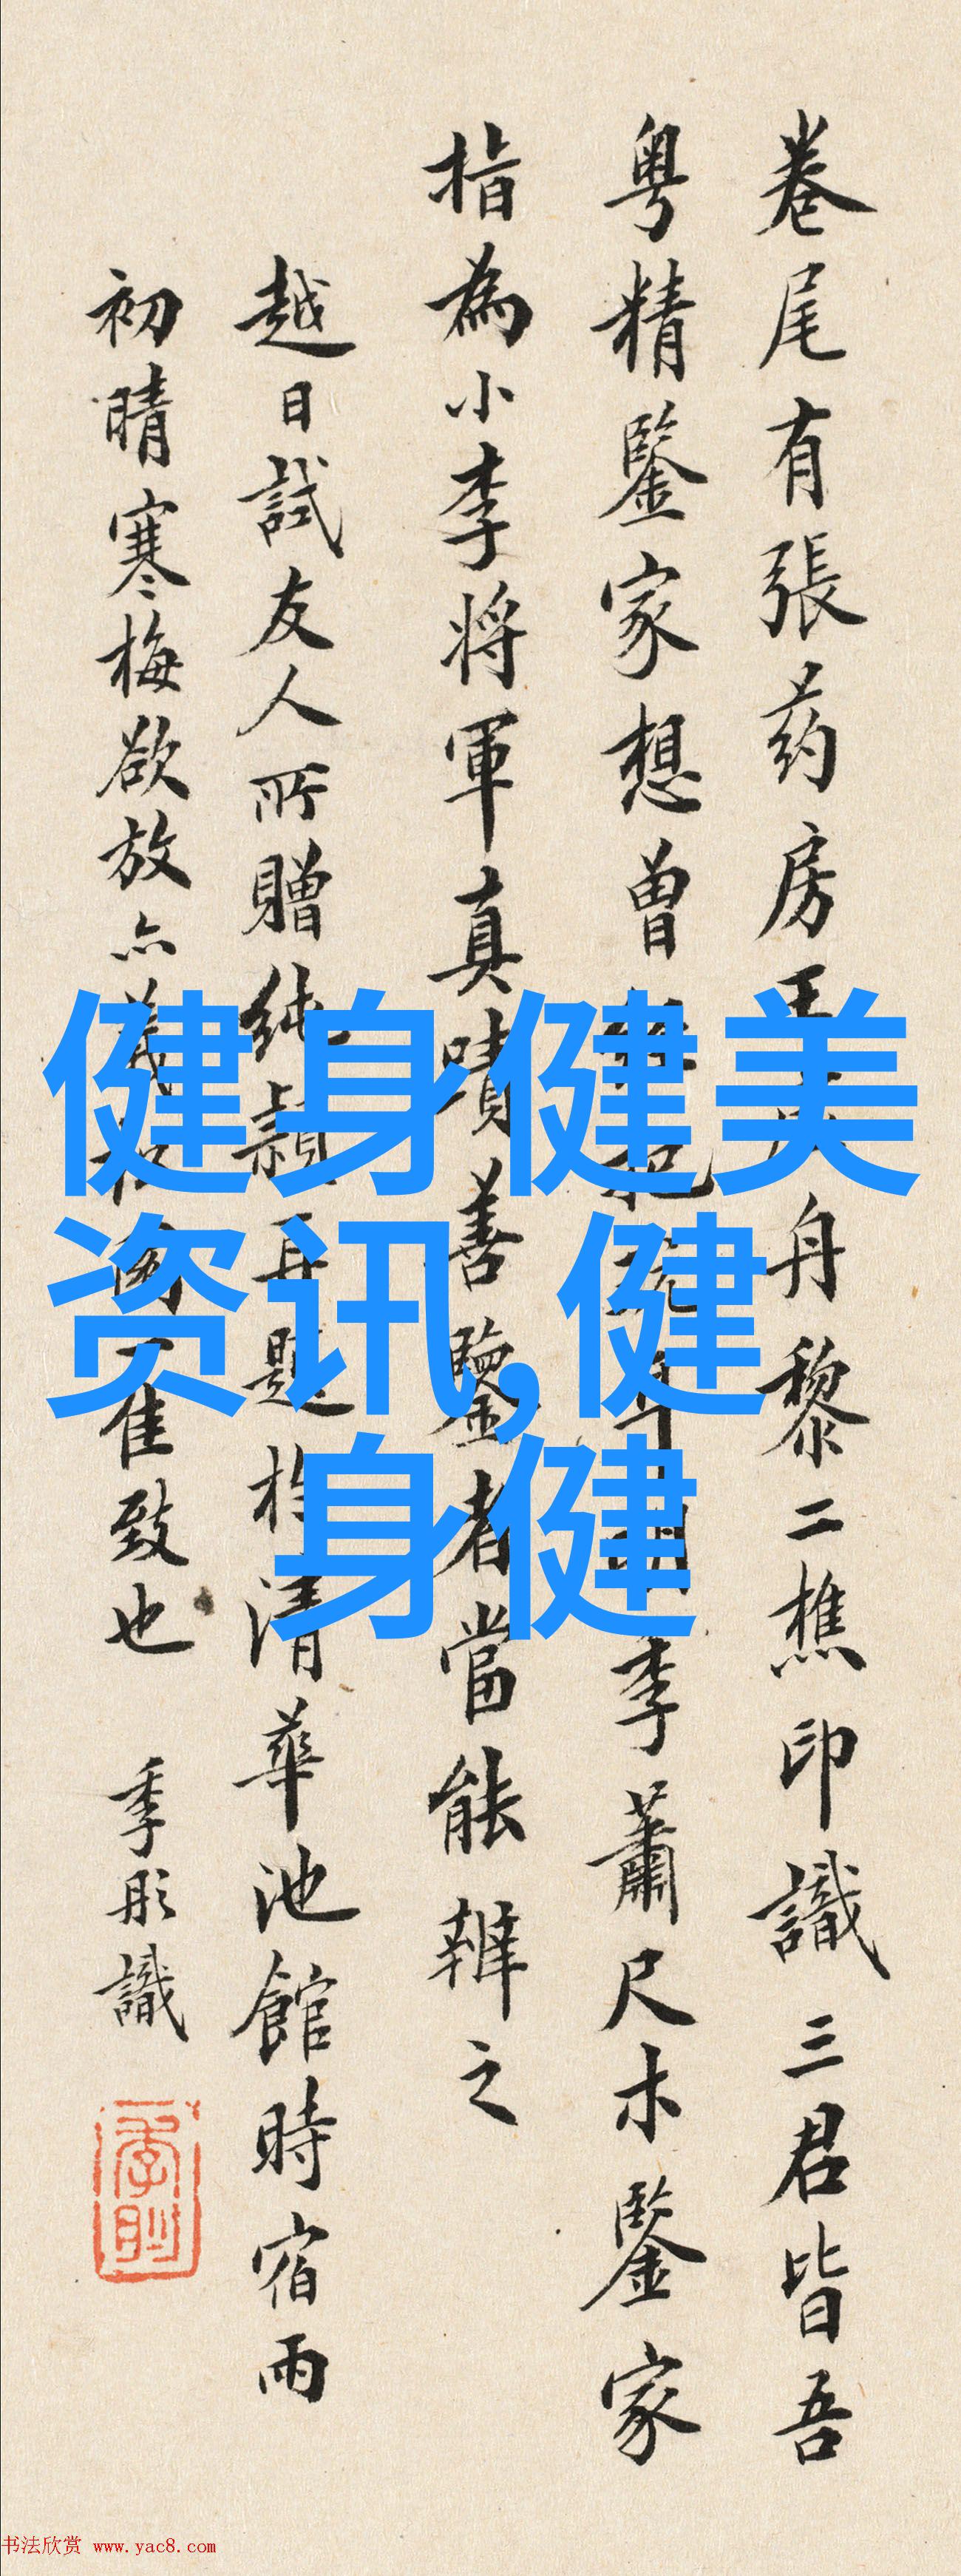 卷尾有張药房王 舟黎二樵印識三君皆吾
粤精鑒家想曾 季蕭尺木鑒家
指為小李将軍真蹟善鑒者當能辨之
越日試友人所贈純穎再題於清華池館時宿雨
初晴寒梅欲放亦 佳致也 季彤識
健身健美
资讯,健
身健
书法欣赏 www.yac8.com